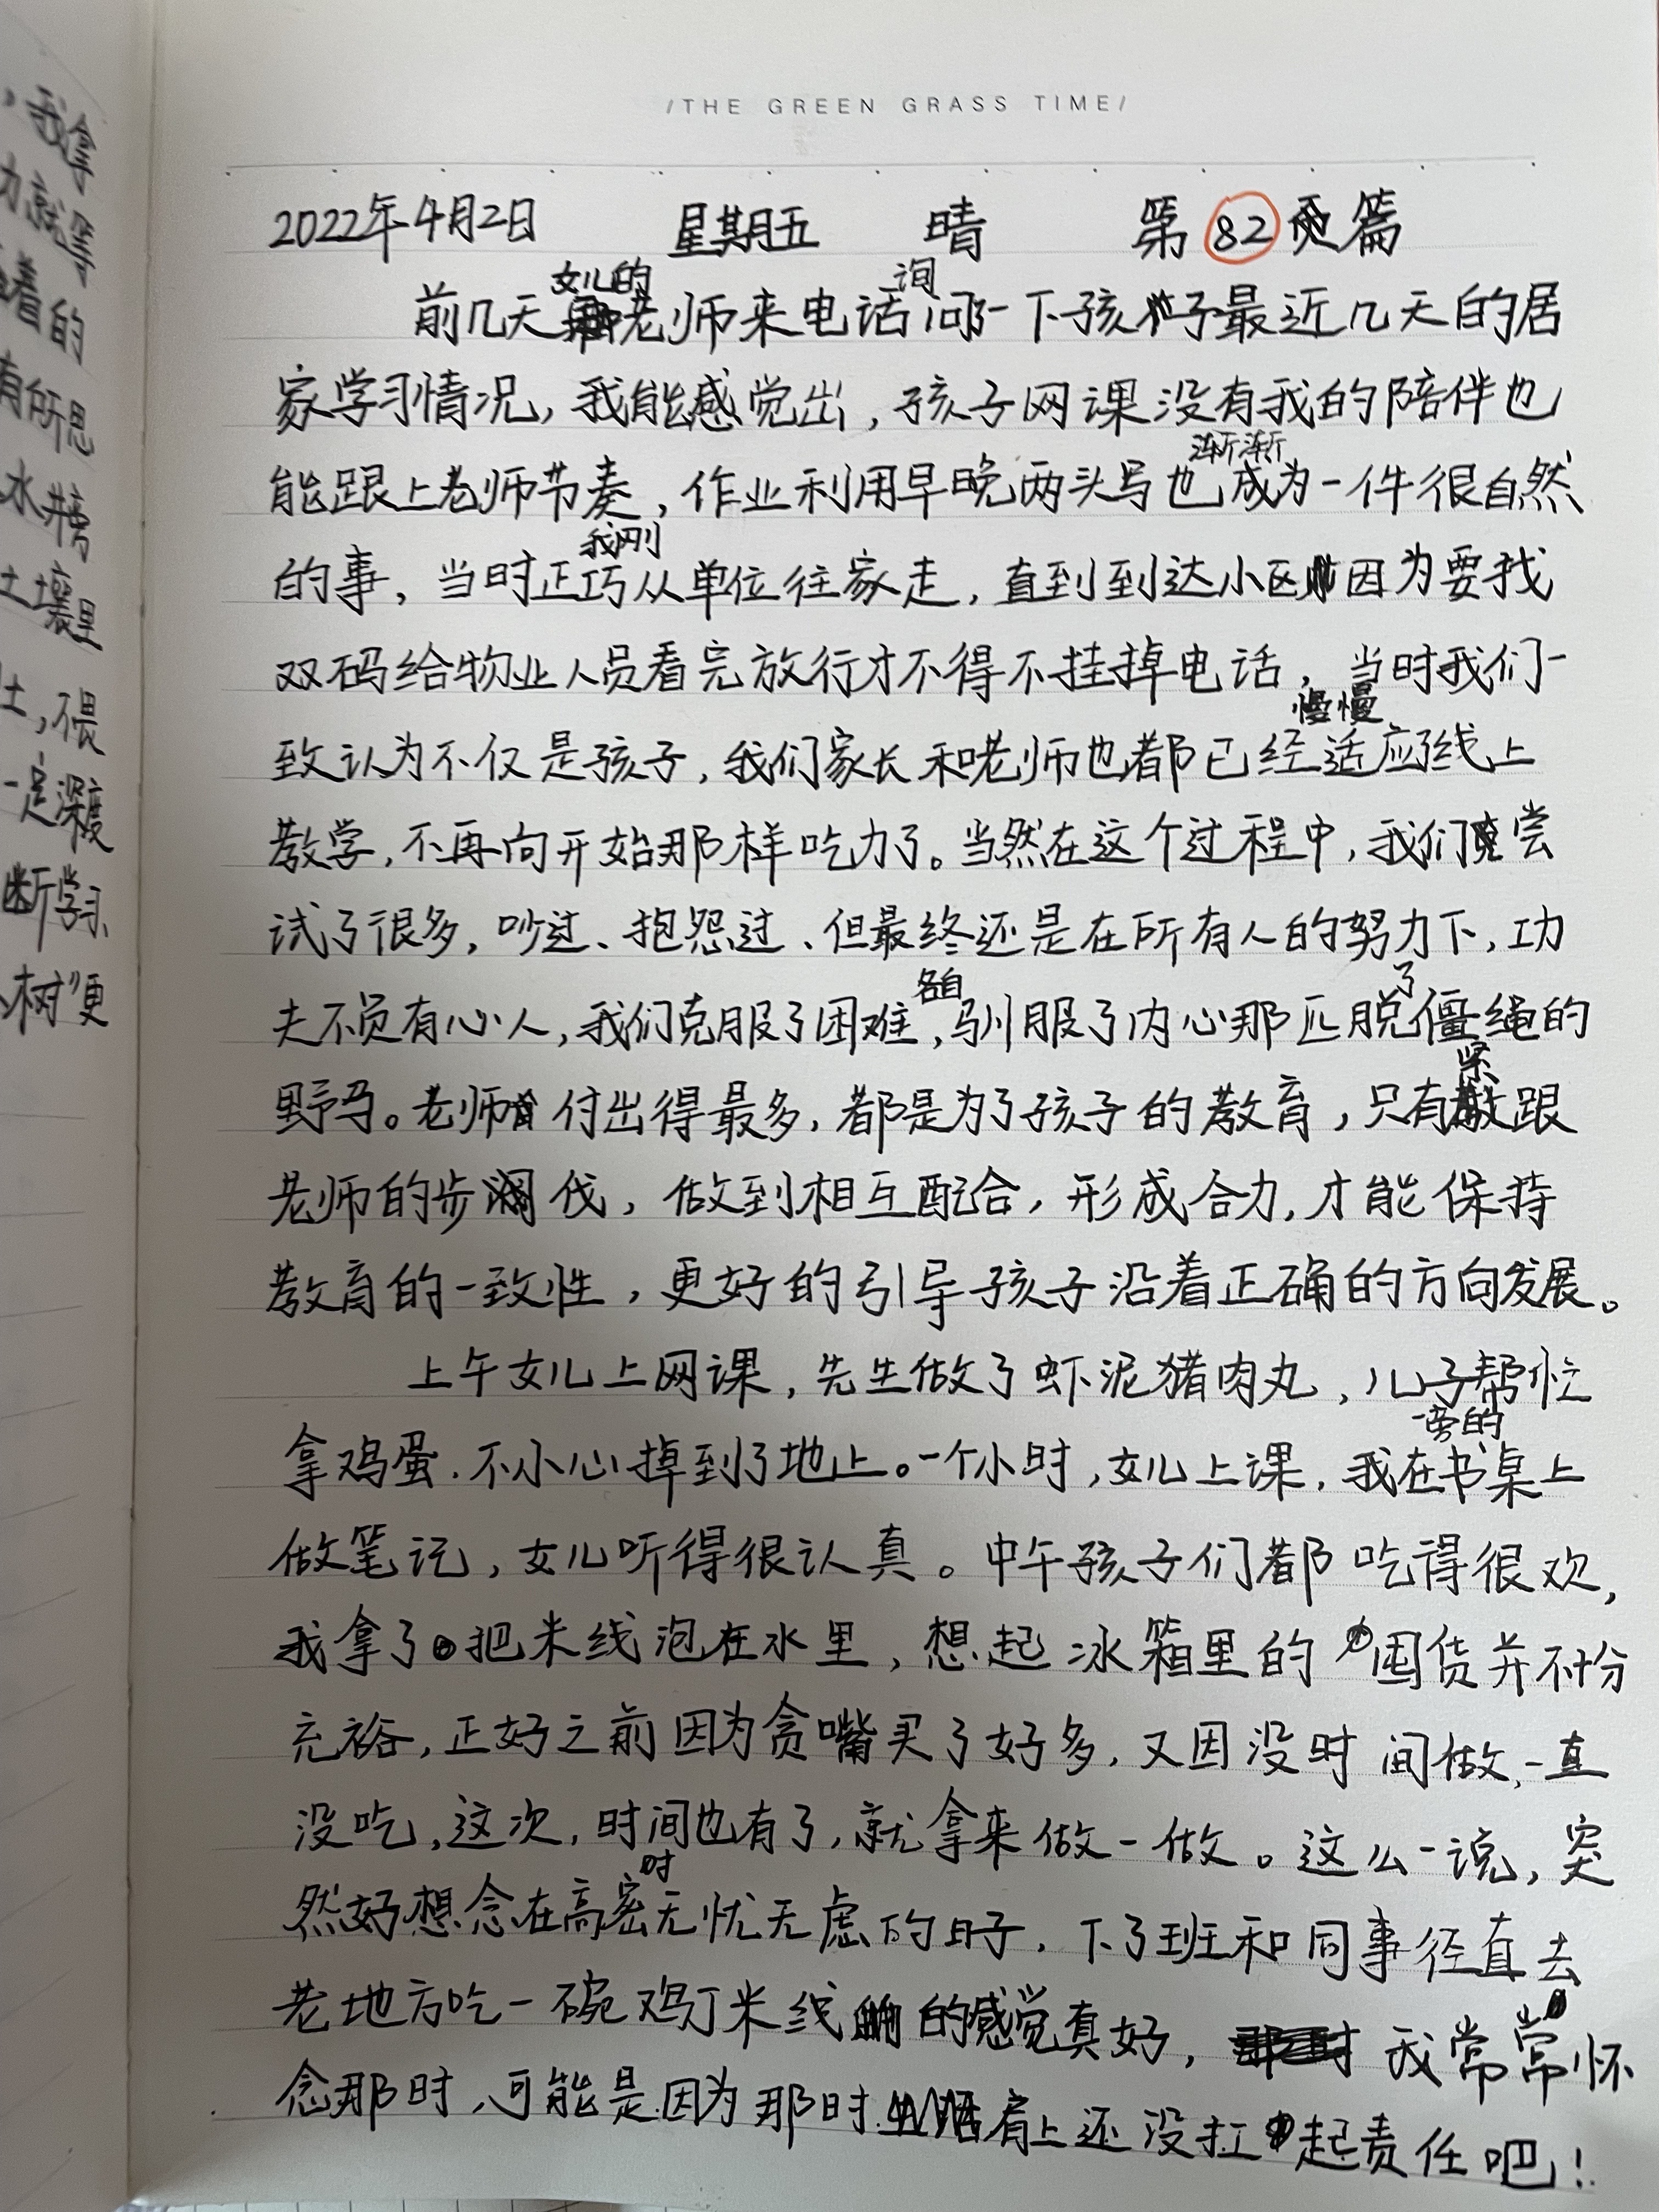 /THE GREEN GRASS TIME/
2022年4月2日 星期五 晴 第82篇
前几天女儿的老师来电话询问一下孩子最近几天的居
家学习情况,我能感觉出,孩子网课没有我的陪伴也
能跟上老师节奏,作业利用早晚两头写也渐渐成为一件很自然
的事,当时正巧我刚从单位往家走,直到到达小区因为要找
双码给物业人员看完放行才不得不挂掉电话,当时我们一
致认为不仅是孩子,我们家长和老师也都已经慢慢适应了线上
教学,不再向开始那样吃力了。当然在这个过程中,我们尝
试了很多,吵过、抱怨过、但最终还是在所有人的努力下,功
夫不负有心人,我们克服了困难,各自驯服了内心那匹脱了僵绳的
野马。老师付出得最多,都是为了孩子的教育,只有紧跟
老师的步伐,做到相互配合,形成合力,才能保持
教育的一致性,更好的引导孩子沿着正确的方向发展。
上午女儿上网课,先生做了虾泥猪肉丸,儿子帮忙
拿鸡蛋.不小心掉到了地上。一个小时,女儿上课,我在一旁的书桌上
做笔记,女儿听得很认真。中午孩子们都吃得很欢,
我拿了把米线泡在水里,想起冰箱里的囤货并不十分
充裕,正好之前因为贪嘴买了好多,又因没时间做,一直
没吃,这次,时间也有了,就拿来做一做。这么一说,突
然好想念在高密时无忧无虑的日子,下了班和同事径直去
老地方吃一碗鸡丁米线的感觉真好,我常常怀
念那时,可能是因为那时肩上还没扛起责任吧!
,我拿
力就等
着的
有所思
水井旁
土壤里
土,不畏
一定深度
断学习、
树"更